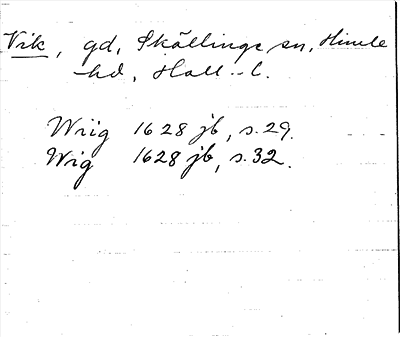 Vik, gd, Skällinge sn, Himle
hd, Hall. l.
Wiig 1628 jb, s. 29.
Wig 1628 jb, s. 32.